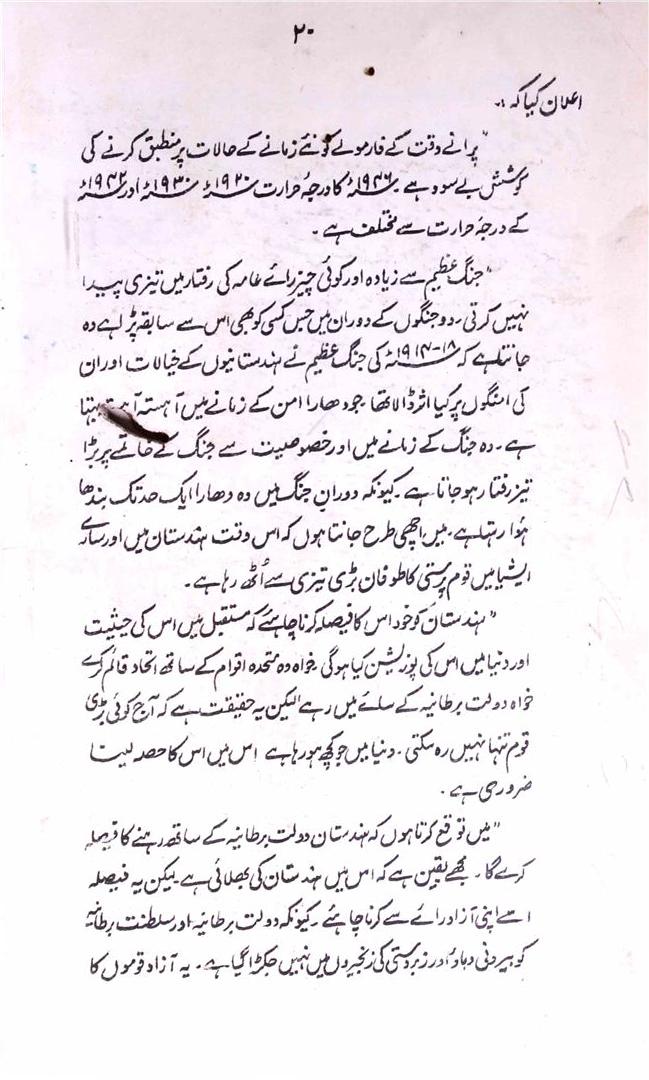 ۲۰
اعلان کیا کہ :۔
"پرانے وقت کے فارمولے کو نئے زمانے کے حالات پر منطبق کرنے کی
کوشش بے سود ہے ۔ ۱۹۴۶ء کا درجۂ حرارت ۱۹۲۰ء ۱۹۳۰ء اور ۱۹۴۲ء
کے درجۂ حرارت سے مختلف ہے ۔
"جنگ عظیم سے زیادہ اور کوئی چیز رائے عامہ کی رفتار میں تیزی پیدا
نہیں کرتی ۔ دو جنگوں کے دوران میں جس کسی کو بھی اس سے سابقہ پڑا ہے وہ
جانتا ہے کہ ۱۸-۱۹۱۴ء کی جنگ عظیم نے ہندستانیوں کے خیالات اور ان
کی امنگوں پر کیا اثر ڈالا تھا ۔ جو دھارا امن کے زمانے میں آہستہ آہستہ بہتا
ہے ۔ وہ جنگ کے زمانے میں اور خصوصیت سے جنگ کے خاتمے پر بڑا
تیز رفتار ہو جاتا ہے ۔ کیونکہ دوران جنگ میں وہ دھارا ایک حد تک بندھا
ہوا رہتا ہے ۔ میں اچھی طرح جانتا ہوں کہ اس وقت ہندستان میں اور سارے
ایشیا میں قوم پرستی کا طوفان بڑی تیزی سے اُٹھ رہا ہے ۔
"ہندستان کو خود اس کا فیصلہ کرنا چاہئے کہ مستقبل میں اس کی حیثیت
اور دنیا میں اس کی پوزیشن کیا ہوگی ۔ خواہ وہ متحدہ اقوام کے ساتھ اتحاد قائم کرے
خواہ دولت برطانیہ کے سائے میں رہے لیکن یہ حقیقت ہے کہ آج کوئی بڑی
قوم تنہا نہیں رہ سکتی ۔ دنیا میں جو کچھ ہو رہا ہے اس میں اس کا حصہ لینا
ضروری ہے ۔
"میں توقع کرتا ہوں کہ ہندستان دولت برطانیہ کے ساتھ رہنے کا فیصلہ
کرے گا ۔ مجھے یقین ہے کہ اس میں ہندستان کی بھلائی ہے لیکن یہ فیصلہ
اسے اپنی آزاد رائے سے کرنا چاہئے ۔ کیونکہ دولت برطانیہ اور سلطنت برطانیہ
کو بیرونی دباؤ اور زبردستی کی زنجیروں میں نہیں جکڑا گیا ہے ۔ یہ آزاد قوموں کا